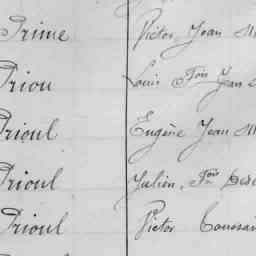 Prime Victor Jean M
Priou Louis Fois Jean
Prioul Eugène Jean M
Prioul Julien, Fois Dés
Prioul Victor Toussai